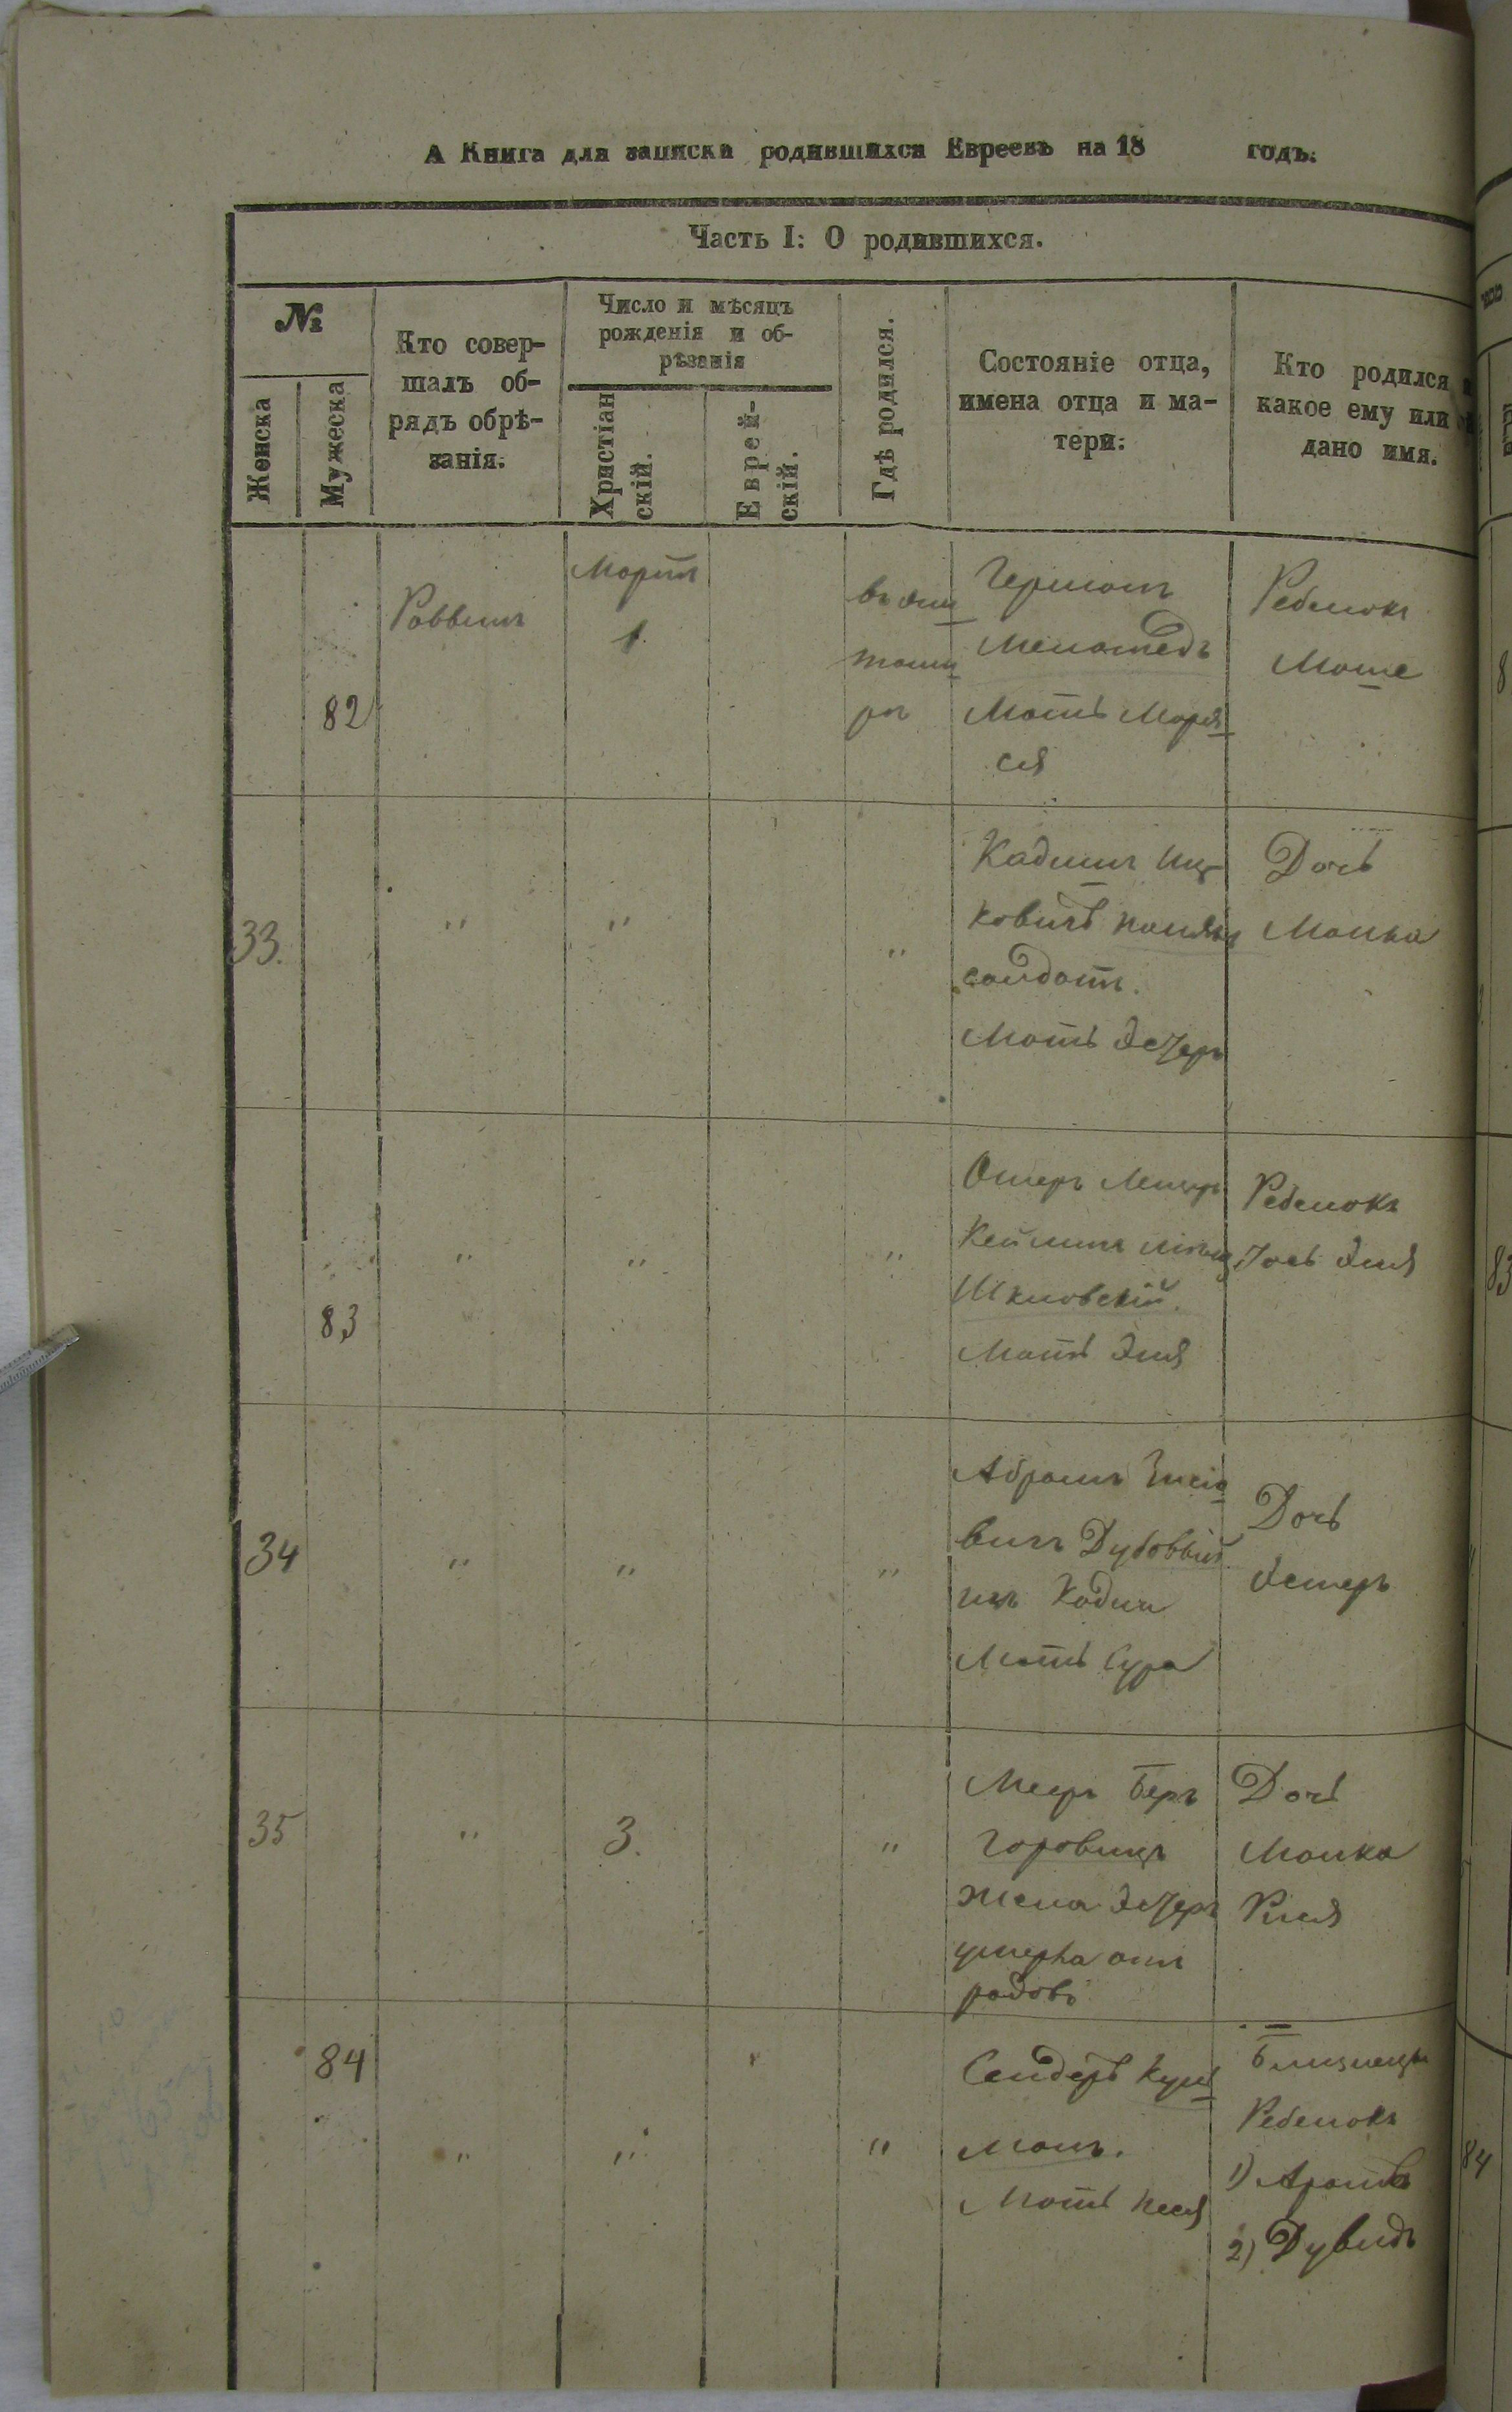 А Книга для записки родившихся Евреевъ на 18 годъ.
Часть I: О родившихся.
№
Женска
Мужеска
Кто совер-
шалъ об-
рядъ обрѣ-
занія.
Число и мѣсяцъ
рожденія и об-
рѣзанія
Христіан
скій.
Еврей-
скій.
Гдѣ родился.
Состояніе отца,
имена отца и ма-
тери.
Кто родился и
какое ему или ей
дано имя.
82
Раввинъ
Мартъ
1
Германъ
Меламедъ
Мать Мара
ся
Ребенокъ
Моше
33.
"
"
"
Кадишъ Иц
ковичъ
солдатъ.
Мать Эстеръ
Дочь
Малка
83
"
"
"
Ошеръ Лейзеръ
Шкловскій.
Мать Эля
Ребенокъ
34
"
"
"
Абрамъ Зисіо
вичъ Дубовый
изъ Кодни
Мать Сура
Дочь
Эстеръ
35
"
3.
"
Мееръ Беръ
Горовицъ
жена Эстеръ
умерла отъ
родовъ
Дочь
Малка
84
"
"
"
Сендеръ Куль
манъ.
Мать Песя
Близнецы
Ребенокъ
1) Аронъ
2) Дувидъ
83
84